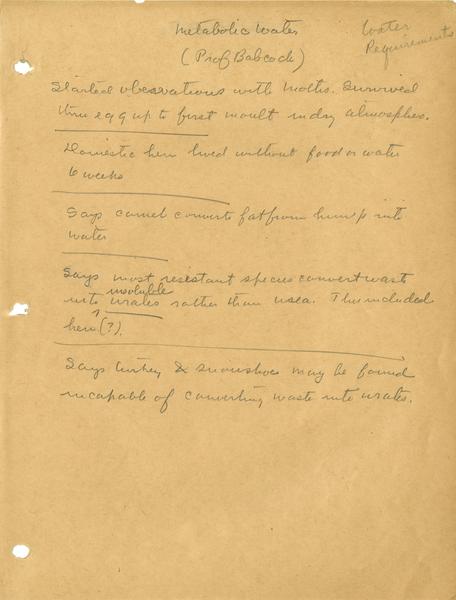 Metabolic Water
Water
Requirements
(Prof Babcock)
Started observations with moths. Survived
thru egg up to first moult in dry atmosphere.
Domestic hen lived without food or water
6 weeks
Says camel converts fat from hump into
water
Says most resistant species convert waste
insoluble
into urates rather than urea. This included
hen (?).
Says turkey & snowshoe may be found
incapable of converting waste into urates.